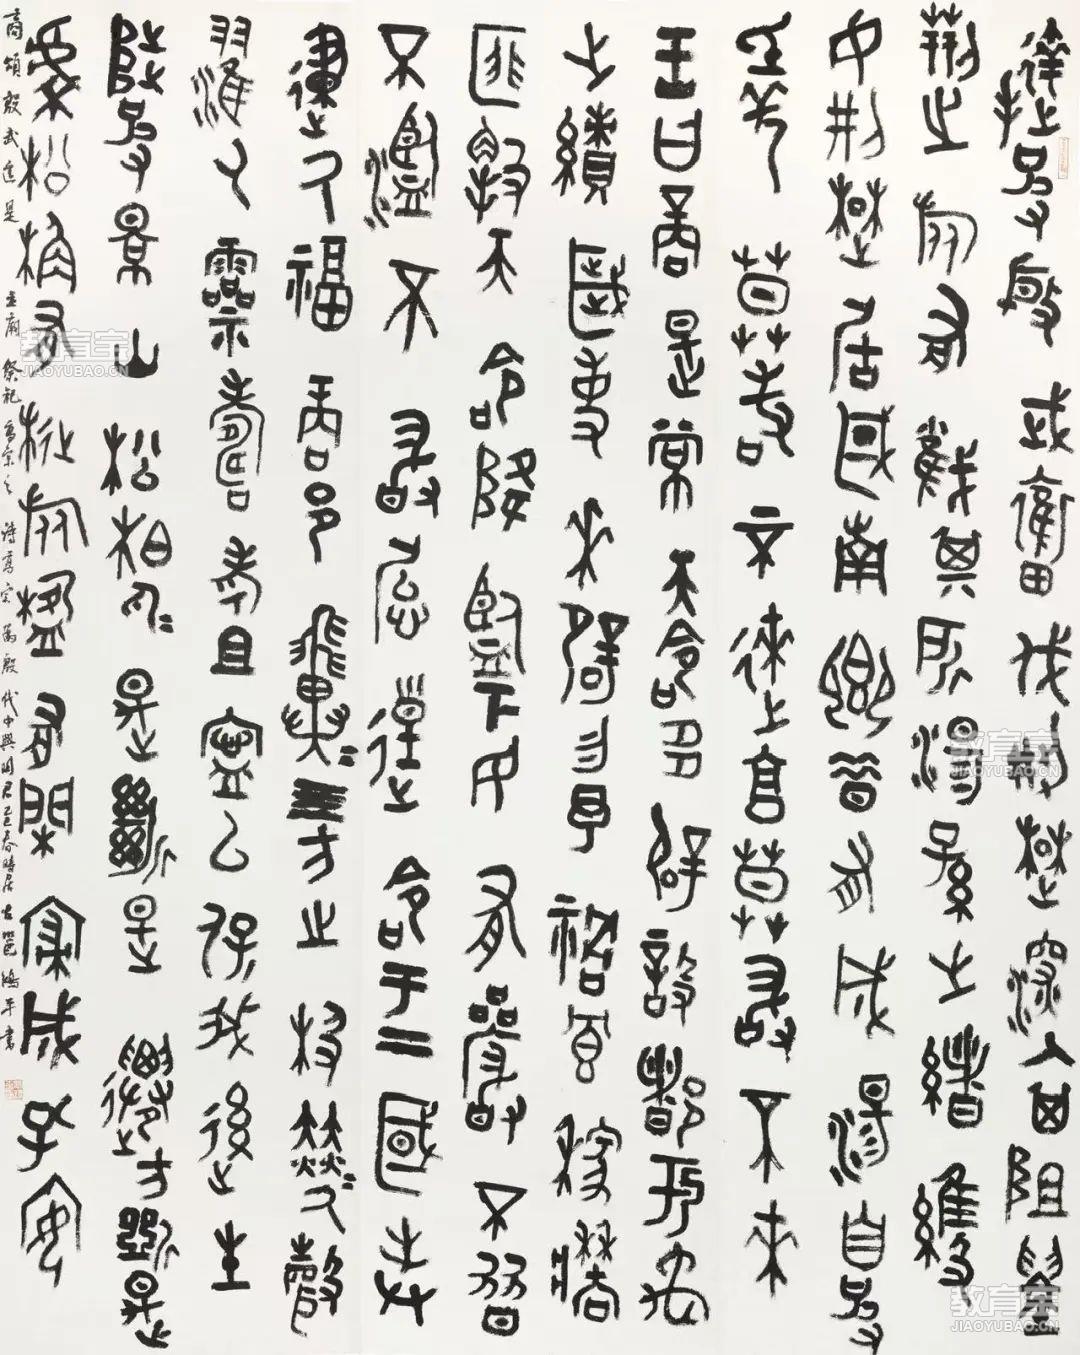 撻彼殷武奮伐荊楚深入其阻裒
荊之旅有截其所湯孫之緒維
女荊楚居國南鄉昔有成湯自彼
氐羌莫敢不來享莫敢不來
王曰商是常天命多辟設都于禹
之績歲事來辟勿予禍適稼穡
匪解天命降監下民有嚴不僭
不濫不敢怠遑命于下國封
建厥福商邑翼〻四方之極赫〻厥聲
濯〻厥靈壽考且寧以保我後生
陟彼景山松柏丸〻是斷是遷方斲是
虔松桷有梴旅楹有閑寢成孔安
商頌殷武這是立廟祭祀高宗之詩高宗為殷代中興明君乙巳春時居古琶鴻平書
教育宝
JIAOYUBAO.CN
教育宝
JIAOYUBAO.CN
教育宝
JIAOYUBAO.CN